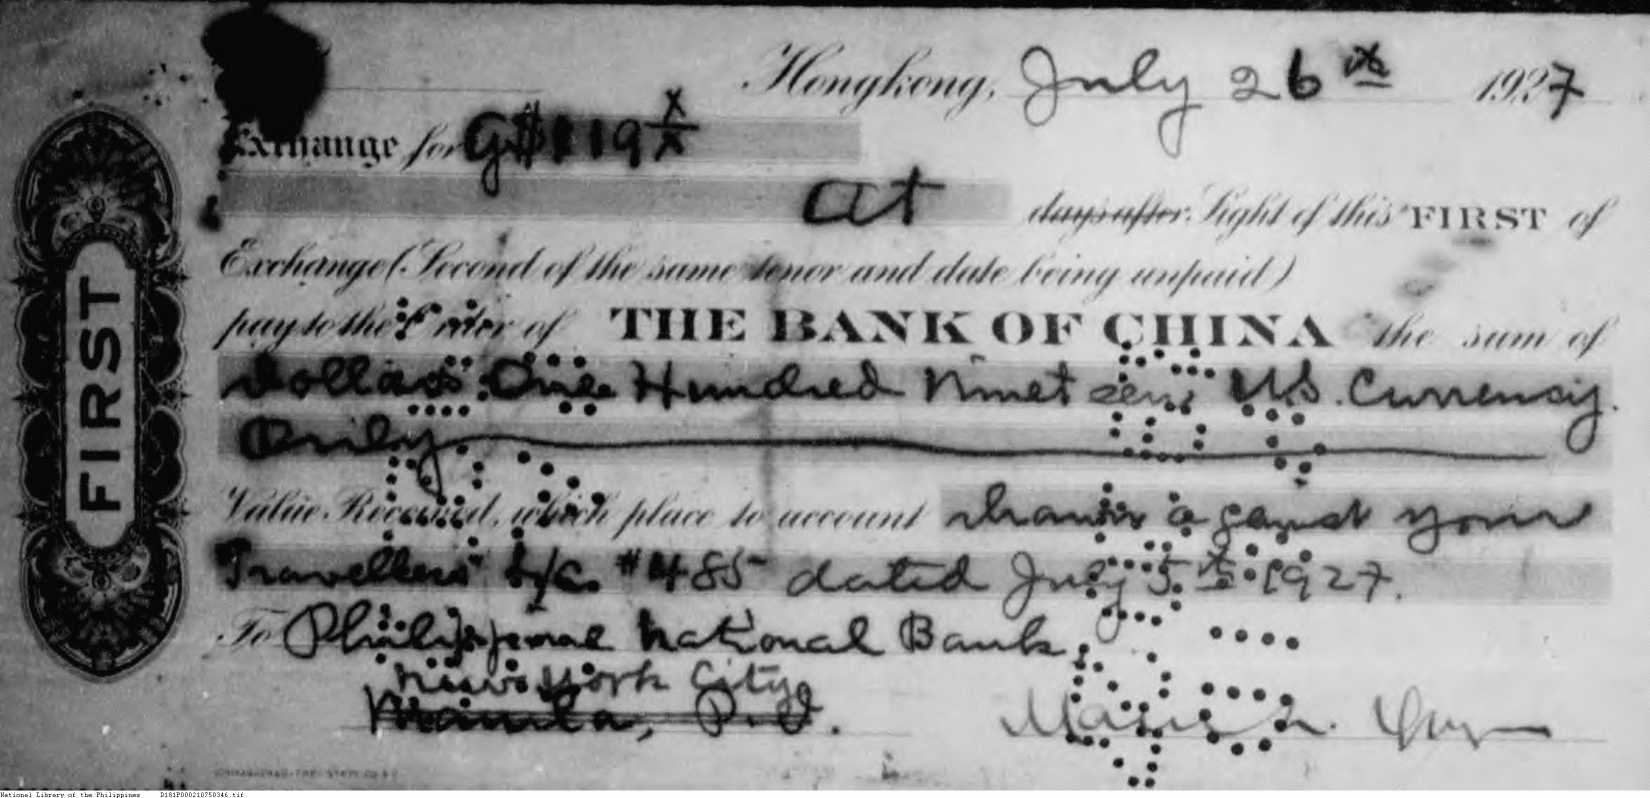 Hongkong, July 26th 1927
Exchange for G$119 x/x
At days after Sight of this FIRST of
Exchange (Second of the same tenor and date being unpaid)
pay to the Order of THE BANK OF CHINA the sum of
Dollars One Hundred Nineteen U.S. Currency.
Only
Value Received, which place to account drawn against your
Travellers L/C. #485 dated July 5th 1927.
To Philippine National Bank,
New York City
Manila, P.I.
FIRST
National Library of the Philippines D181P000210750346.tif